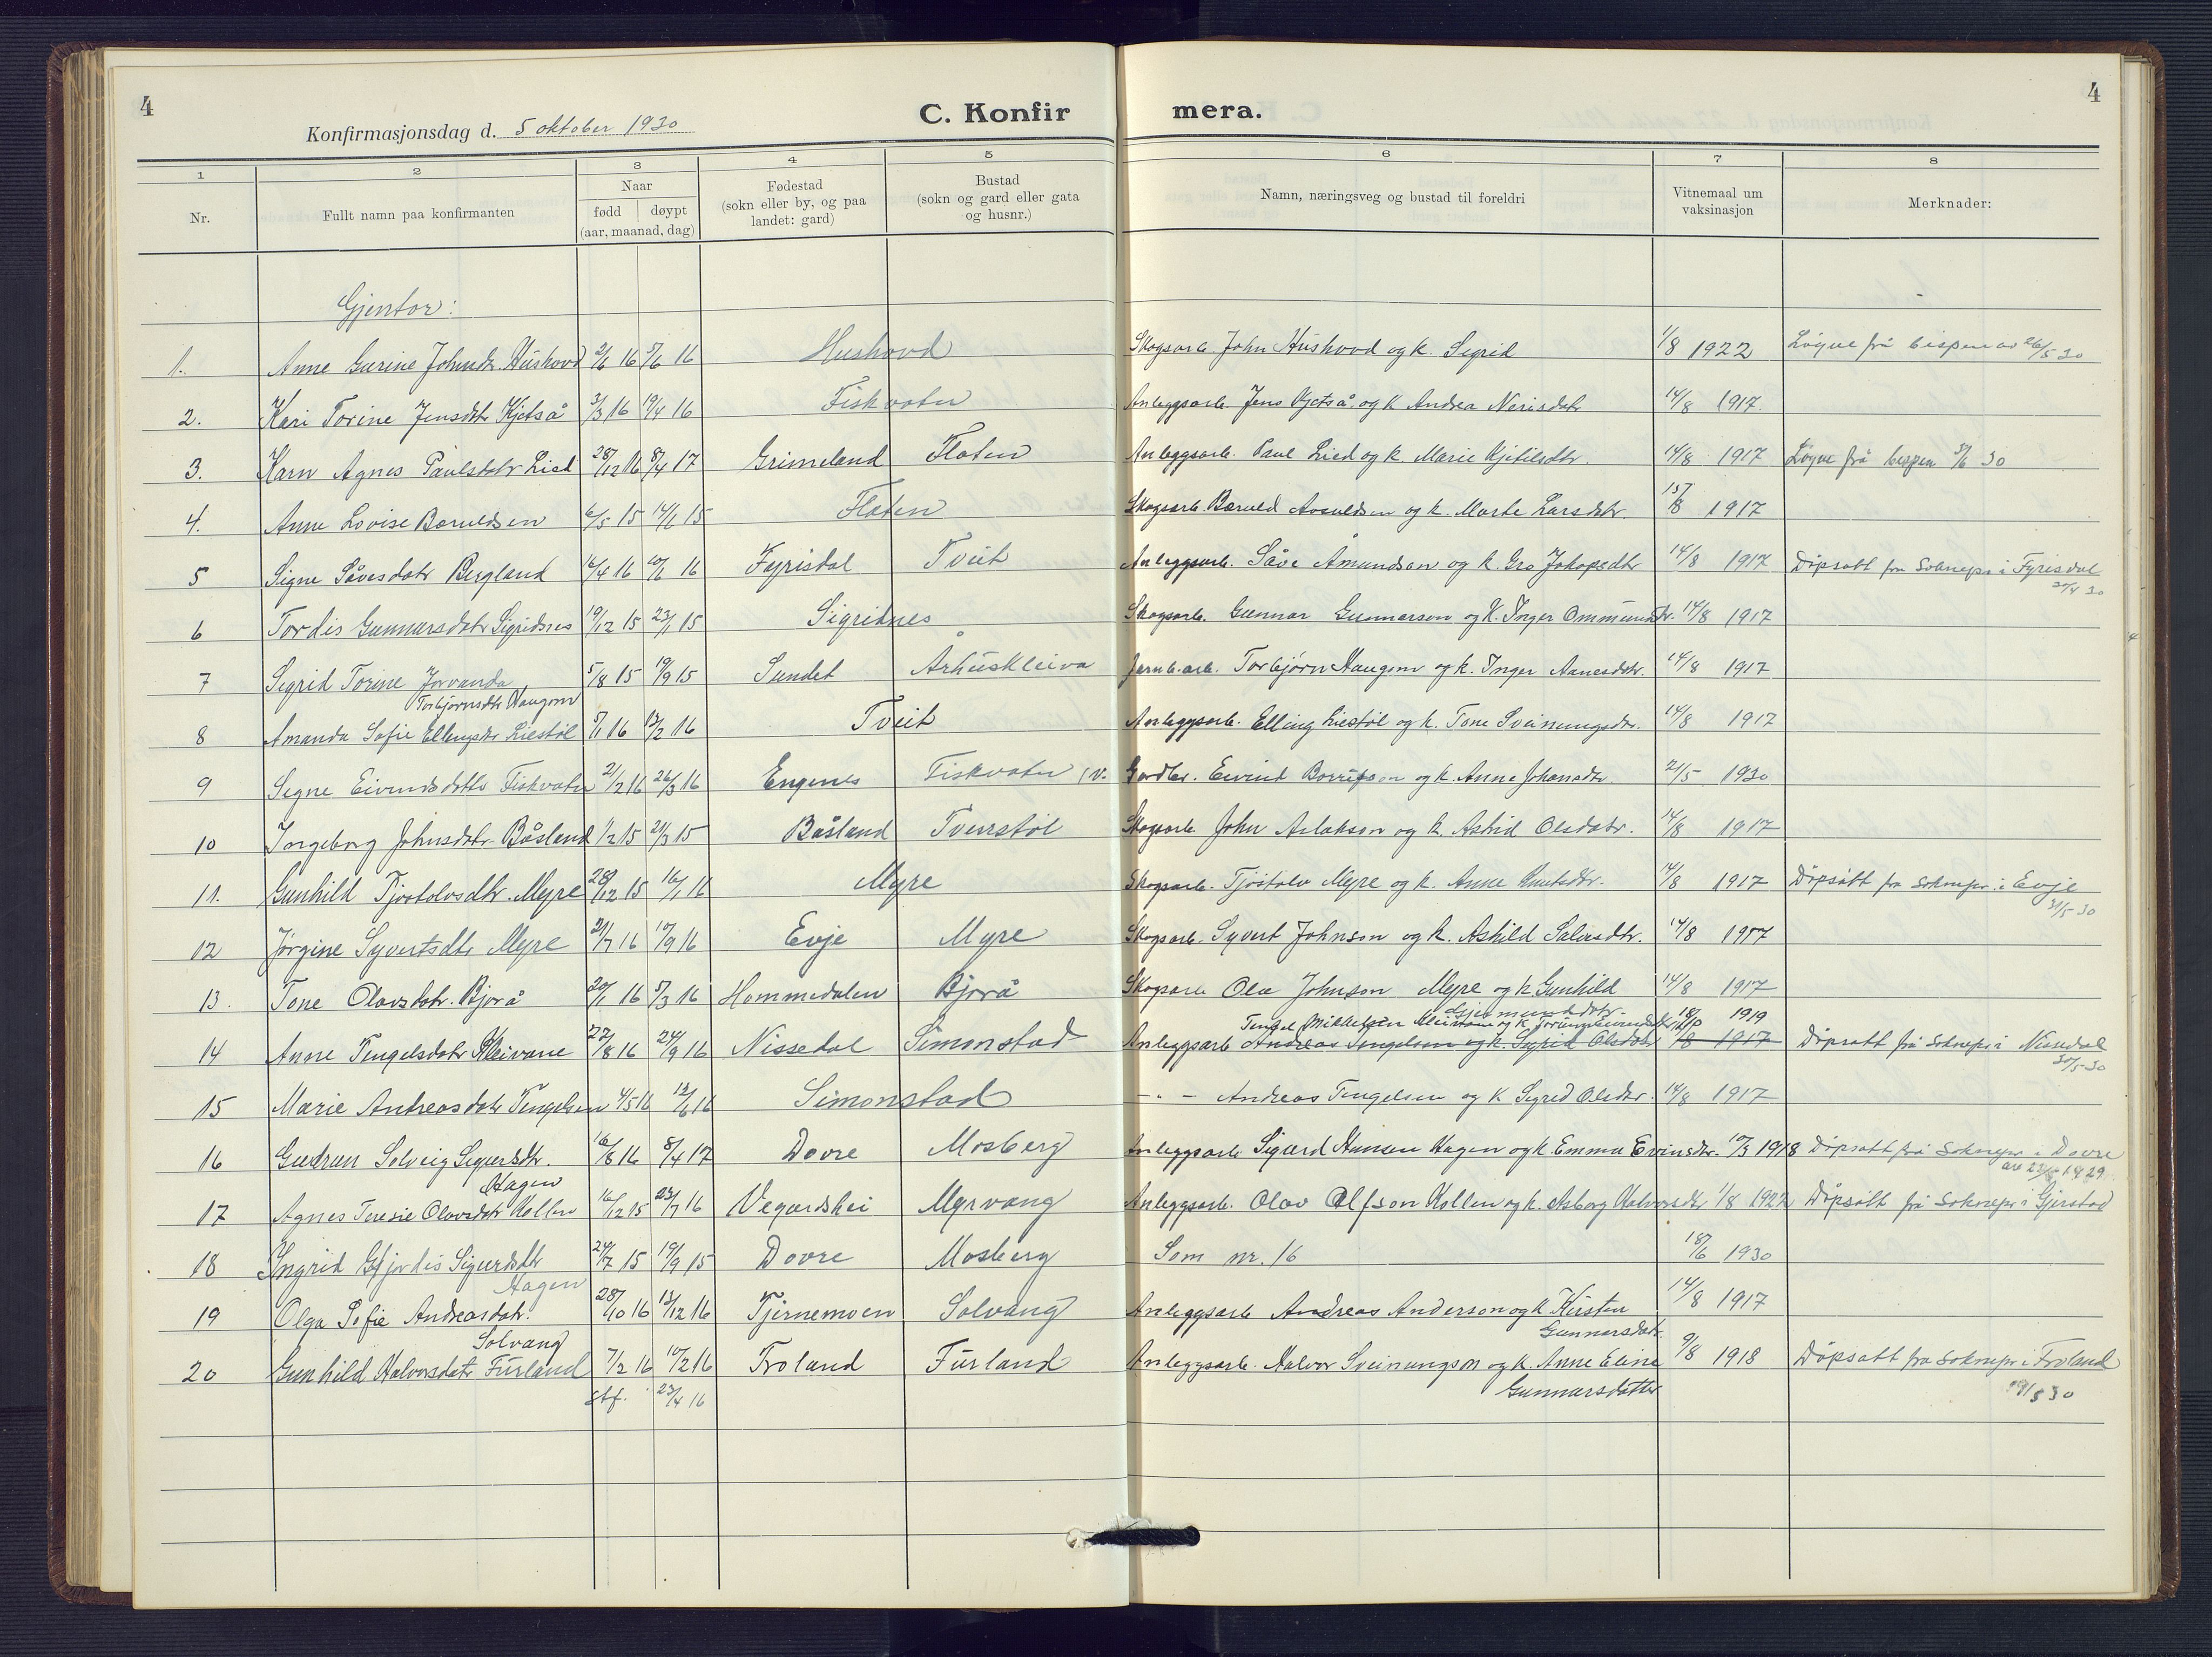 4
Konfirmasjonsdag d. 5 oktober 1930
C. Konfirmera.
4
1 2 3 4 5 6 7 8
Nr. Fullt namn paa konfirmanten Naar fødd døypt (aar, maanad, dag) Fødestad (sokn eller by, og paa landet: gard) Bustad (sokn og gard eller gata og husnr.) Namn, næringsveg og bustad til foreldri Vitnemaal um vaksinasjon Merknader:
Gjentor:
1. Anne Gurine Johnsdtr. Hushovd 2/1 16 5/6 16 Hushovd Skogsarb. John Hushovd og k. Sigrid 1/8 1922 Løyve frå bispen av 26/5 30
2. Kari Torine Jensdtr Kjetså 3/3 16 19/4 16 Fiskvatn Anleggsarb. Jens Kjetså og k Andrea Nerisdatr 14/8 1917.
3. Karn Agnes Paulsdatr Lied 28/12 16 8/4 17 Grimeland Flaten Anleggsarb. Paul Lied og k. Marie Kjetilsdtr. 14/8 1917 Løyve frå bispen 3/6 30
4. Anne Lovise Baruldsen 6/5 15 14/6 15 Flaten Skogsarb. Baruld Avauldsen og k. Marte Larsdtr. 15/8 1917
5 Signe Såvesdatr Bergland 16/4 16 10/6 16 Fyrisdal Tveit Anleggsarb. Såve Åmundsen og k. Gro Jakopsdtr 14/8 1917 Døpsatt fra Soknepr i Fyrisdal 30/4 30
6 Tordis Gunnarsdatr Sigridsnes 19/12 15 23/1 15 Sigridnes Skogsarb. Gunnar Gunnarson og K. Inger Ommundsdtr. 14/8 1917
7 Sigrid Torine Jorvanda 5/8 15 19/9 15 Sundet Århuskleiva Jernb.arb. Torbjørn Haugom og k. Inger Aanesdtr. 14/8 1917
Torbjørnsdtr Haugom
8 Amanda Sofie Ellingsdtr Liestøl 5/1 16 13/2 16 Tveit Anleggsarb. Elling Liestøl og k. Tone Sveinungsdtr. 14/8 1917
9 Signe Eivindsdatter Fiskvatn 21/2 16 26/3 16 Engenes Fiskvatn (v. Gardbr. Eivind Borrufson og k. Anne Johansdtr. 21/5 1930
10 Ingeborg Johnsdatr. Båsland 1/2 15 21/3 15 Båsland Tverstøl Skogsarb John Aslakson og k. Astrid Olsdatr. 14/8 1917
11. Gunhild Tjostolvsdtr. Myre 28/12 15 16/1 16 Myre Skogsarb. Tjostolv Myre og k. Anne Knutsdtr. 14/8 1917 Døpsatt fra Soknepr. i Evje
31/5 30
12 Jørgine Syvertsdtr Myre 21/7 16 10/9 16 Evje Myre Skogsarb. Syvert Johnson og k. Askild Salvesdtr. 14/8 1917
13. Tone Olavsdatr. Bjorå 20/1 16 5/3 16 Hommedalen Bjorå Skogsarb Ola Johnson Myre og k Gunhild 14/8 1917
14 Anne Tengelsdatr Kleivane 22/8 16 24/9 16 Nissedal Simonstad Anleggsarb Andreas Tengelsen og k. Sigrid Olsdatr 1917 1919 Døpsatt frå Soknepr i Nissedal
30/5 30
15 Marie Andreasdatr Tengelsen 4/5 16 12/6 16 Simonstad - " - Andreas Tengelsen og k Sigrid Olsdtr. 14/8 1917
16 Gudrun Solveig Sigurdsdtr. 16/8 16 8/4 17 Dovre Mosberg Anleggsarb Sigurd Hansen Hagen og k. Emma Evinsdtr. 10/3 1918 Døpsatt frå Soknepr i Dovre
Hagen
17 Agnes Teresie Olavsdatr Kollen 16/12 15 23/7 16 Vegardshei Myrvang Anleggsarb. Olav Olfson Kollen og k. Asborg Halvorsdtr 1/8 1922 Døpsatt frå Soknepr i Gjerstad
18 Ingrid Gjordis Sigurdsdtr 24/7 15 19/9 15 Dovre Mosberg Som nr. 16 18/6 1930
Hagen
19 Olga Sofie Andreasdatr. 28/10 16 13/12 16 Tjirnemoen Solvang Anleggsarb Andreas Anderson og k Kirsten 14/8 1917
Solvang Gunnarsdatr.
20 Gunhild Halvorsdatr Furland 7/2 16 10/2 16 Froland Furland Anleggsarb. Halvor Sveinungson og k. Anne Eline 9/8 1918 Døpsatt fra Soknepr i Froland
stf. 23/4 16 Gunnarsdatter 19/5 30